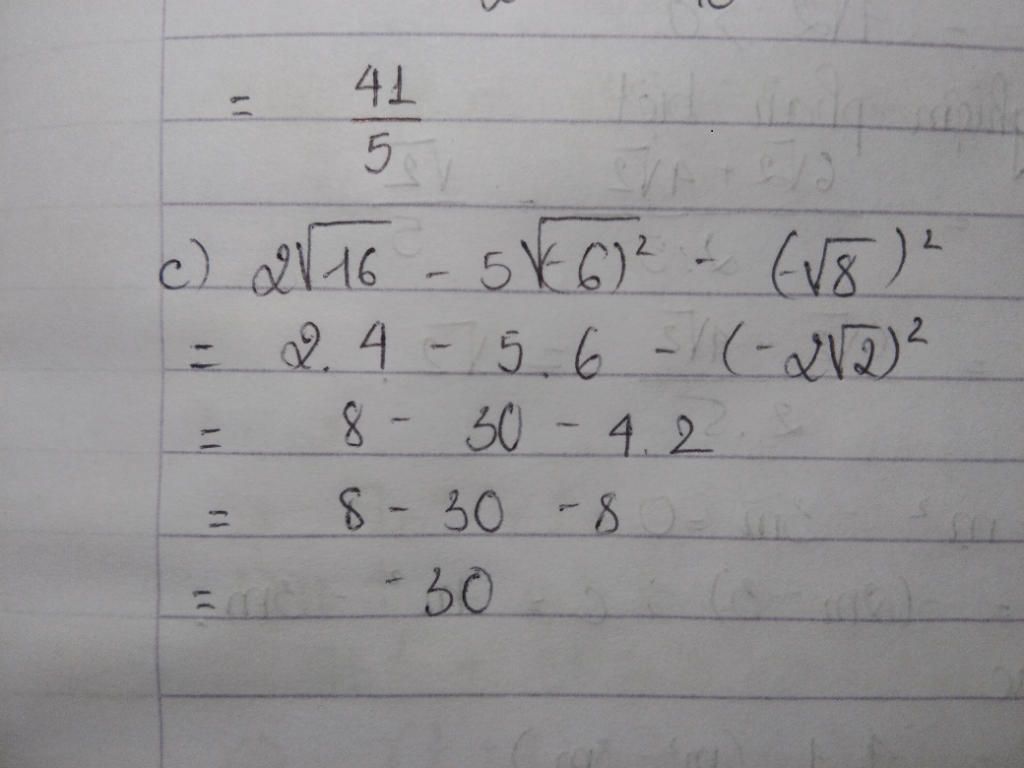 = 41/5
c) 2√16 - 5√(-6)² - (-√8)²
= 2.4 - 5.6 - (-2√2)²
= 8 - 30 - 4.2
= 8 - 30 - 8
= -30